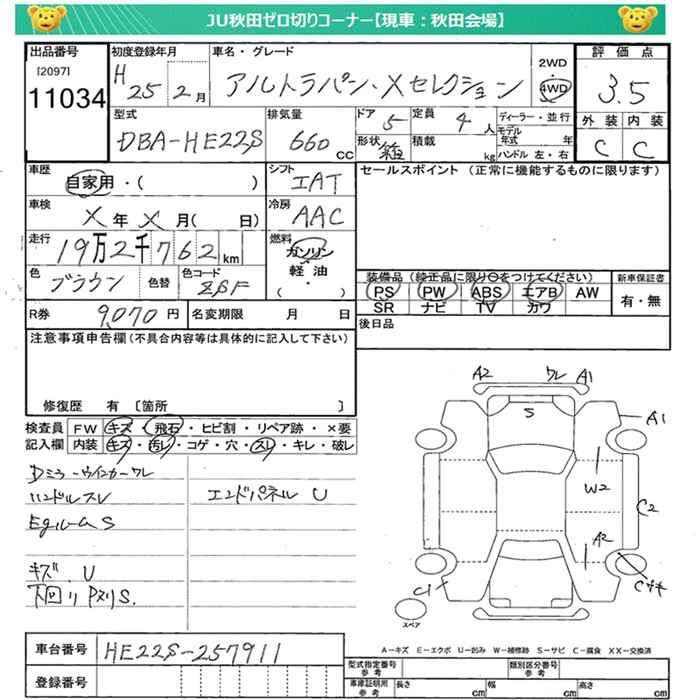 JU秋田ゼロ切りコーナー【現車：秋田会場】
出品番号 初度登録年月 車名・グレード 2WD 評価点
[2097] H 25年 2月 アルトラパン・Xセレクション 4WD 3.5
11034
型式 排気量 ドア 定員 ディーラー・並行 外装 内装
DBA-HE22S 660 CC 5 4人 モデル年式 年 C C
形状 箱 積載 kg ハンドル 左・右
車歴 シフト セールスポイント (正常に機能するものに限ります)
自家用・( ) IAT
車検 冷房
X年X月( 日) AAC
走行 燃料
19万2千762km ガソリン
軽油
・
( )
色 ブラウン 色替 色コード ZBF
装備品 (純正品に限り○をつけてください) 新車保証書
PS PW ABS エアB AW 有・無
SR ナビ TV カワ
R券 9,070円 名変期限 月 日 後日品
注意事項申告欄 (不具合内容等は具体的に記入して下さい)
修復歴 有 〔箇所 〕
検査員 FW キズ・飛石・ヒビ割・リペア跡・×要
記入欄 内装 キズ・汚レ・コゲ・穴・スレ・キレ・破レ
Dミラーウインカーワレ
ハンドルスレ エンドパネル U
EgルームS
キズ、U
下回りPヌリS.
A2 ワレ A1
S A1
W2 C2
A2
C1
スペア
A－キズ E－エクボ U－凹み W－補修跡 S－サビ C－腐食 XX－交換済
車台番号 HE22S-257911
登録番号
型式指定番号 参考 類別区分番号 参考
車庫証明用 参考 長さ cm 幅 cm 高さ cm